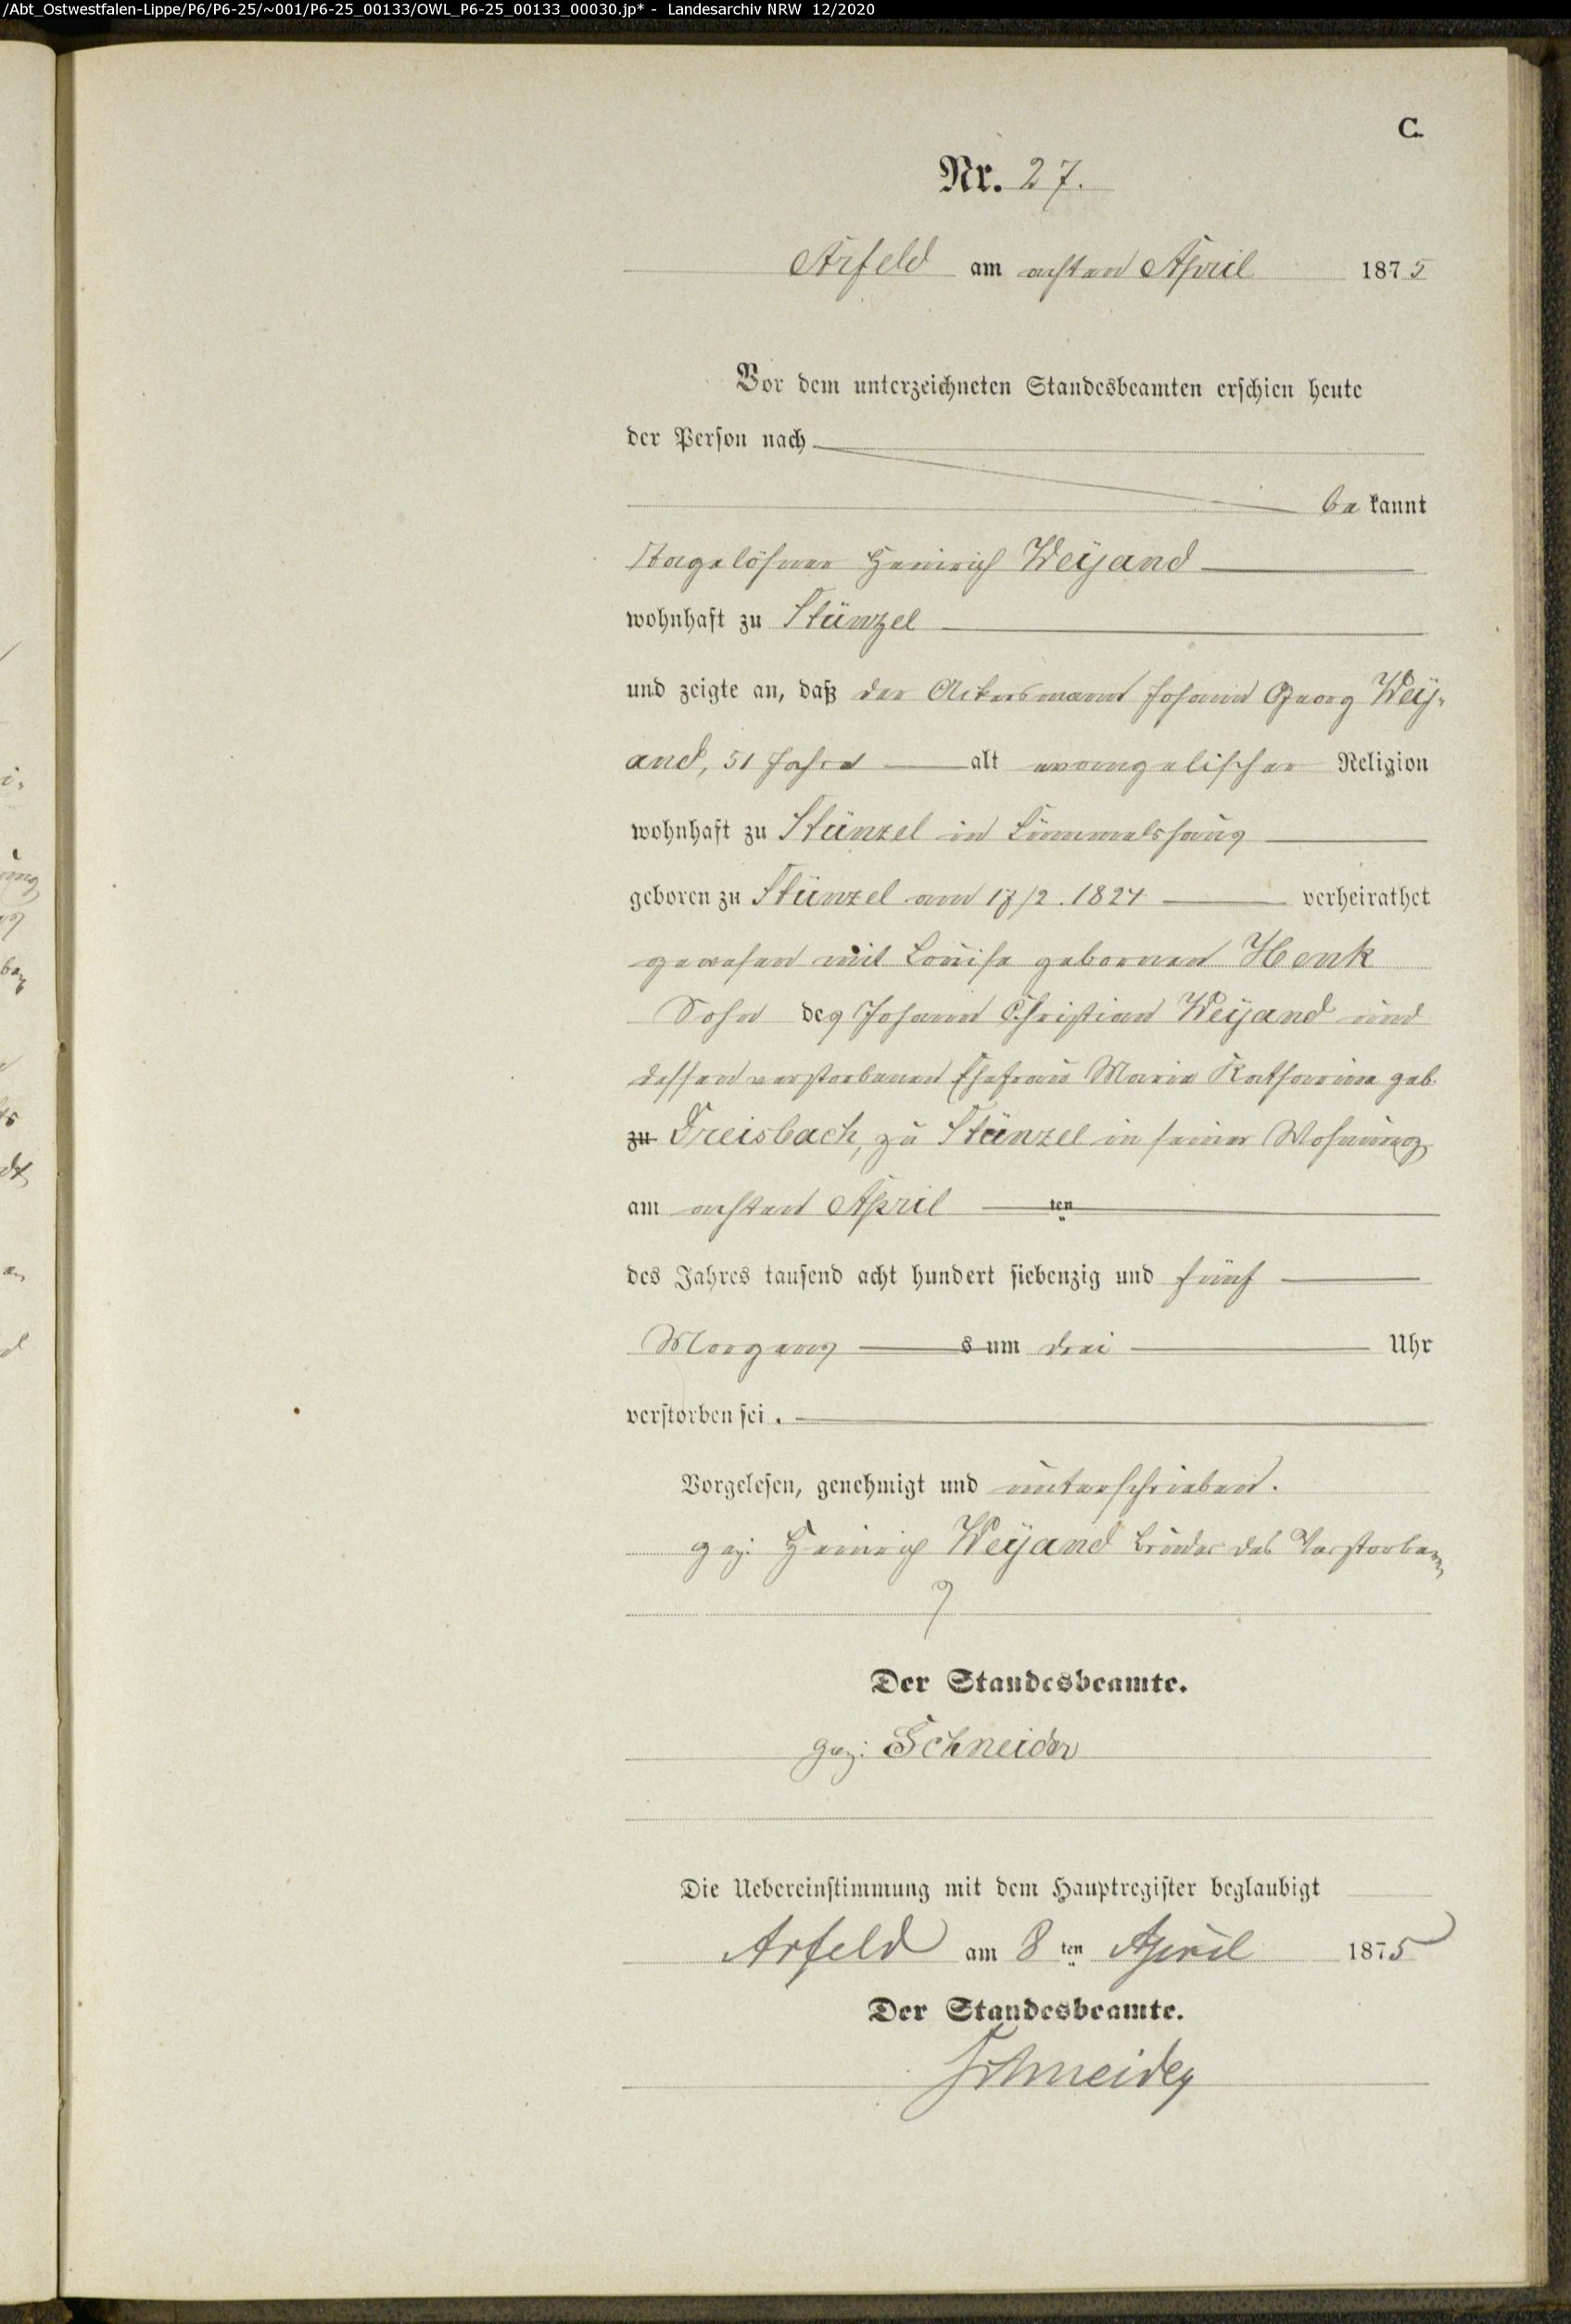 /Abt_Ostwestfalen-Lippe/P6/P6-25/~001/P6-25_00133/OWL_P6-25_00133_00030.jp* - Landesarchiv NRW 12/2020
C.
Nr. 27.
Arfeld am achten April 1875
Vor dem unterzeichneten Standesbeamten erschien heute
der Person nach
be kannt
Tagelöhner Heinrich Weÿand
wohnhaft zu Stünzel
und zeigte an, daß der Ackersmann Johann Georg Weÿ-
and, 51 Jahre alt evangelischer Religion
wohnhaft zu Stünzel in
geboren zu Stünzel am 17/2. 1824 verheirathet
gewesen mit Louise gebornen Honk
Sohn des Johann Christian Weÿand und
dessen verstorbenen Ehefrau Marie Katharine geb.
zu Dreisbach, zu Stünzel in seiner Wohnung
am achten April ten
des Jahres tausend acht hundert siebenzig und fünf
Morgens s um drei Uhr
verstorben sei.
Vorgelesen, genehmigt und unterschrieben.
gez: Heinrich Weÿand Bruder des Verstorben
Der Standesbeamte.
gez: Schneider
Die Uebereinstimmung mit dem Hauptregister beglaubigt
Arfeld am 8 ten April 1875
Der Standesbeamte.
Schneider